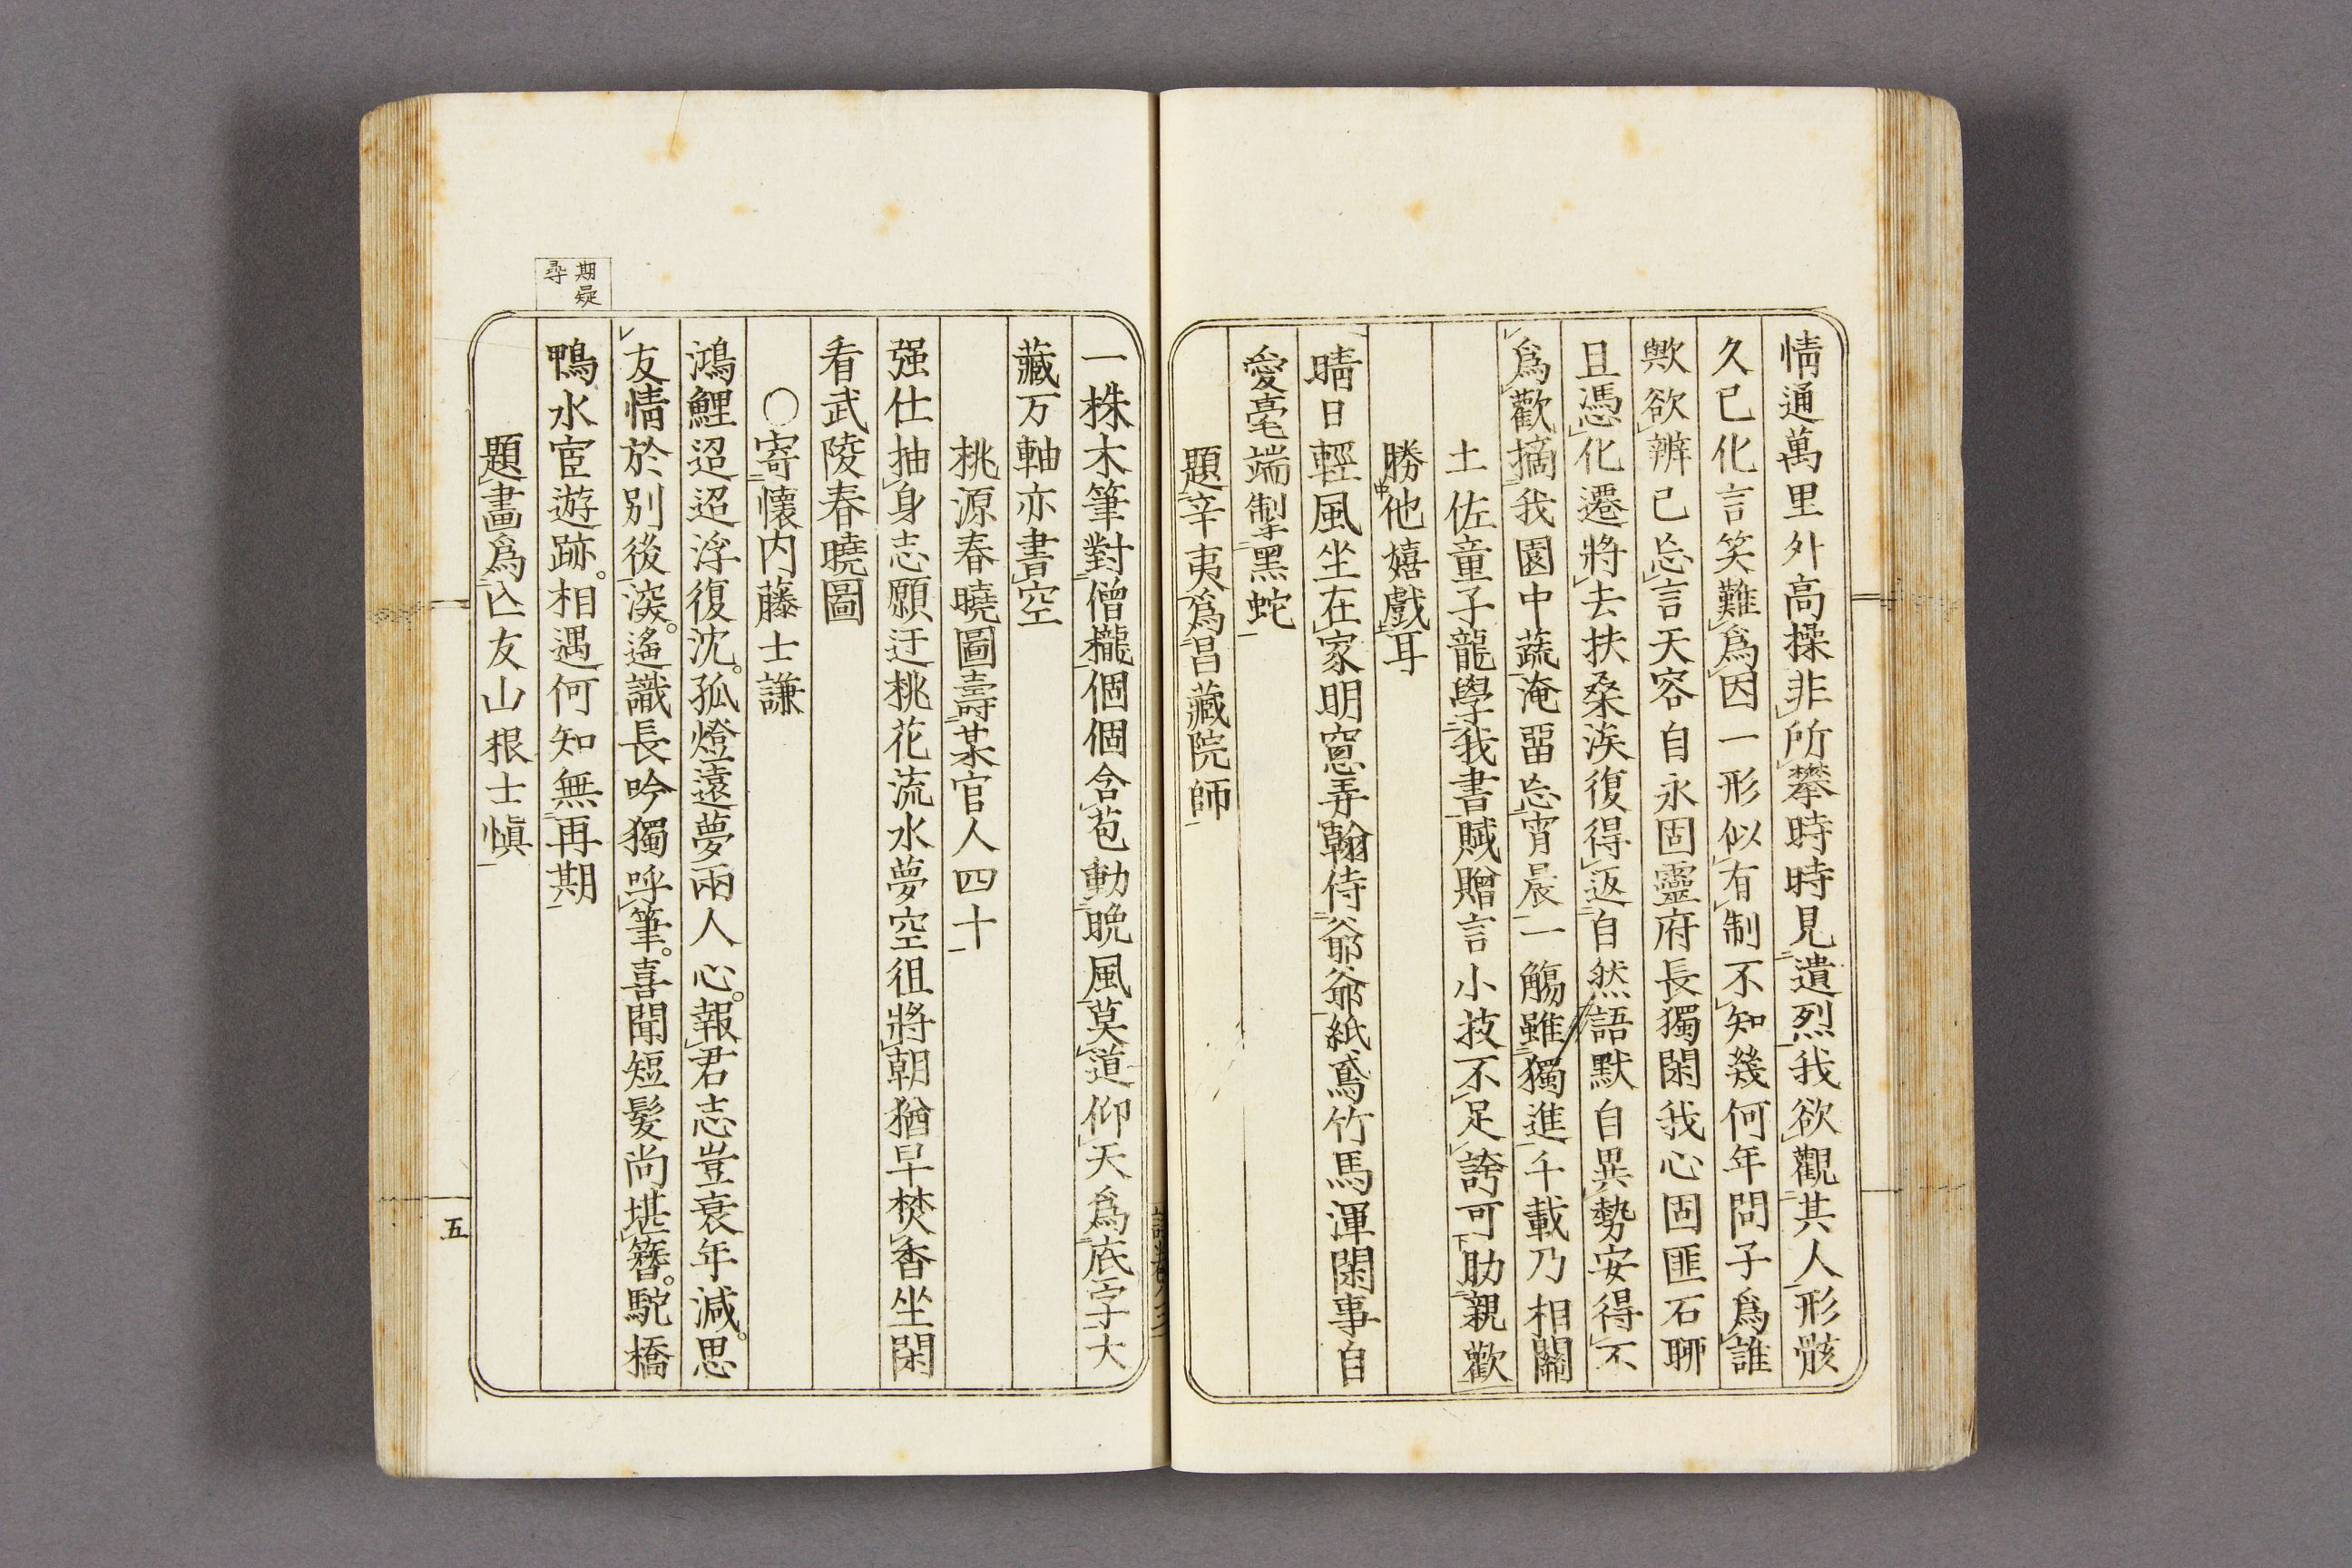 情通萬里外高操非所攀時時見遺烈我欲觀其人形骸
久已化言笑難爲因一形似有制不知幾何年問子爲誰
歟欲辨已忘言天容自永固靈府長獨閑我心固匪石聊
且憑化遷將去扶桑涘復得返自然語默自異勢安得不
爲歡摘我園中蔬淹畱忘宵晨一觴雖獨進千載乃相關
土佐童子龍學我書賦贈言小技不足誇可助親歡
勝他嬉戲耳
晴日輕風坐在家明窻弄翰侍爺爺紙鳶竹馬渾閑事自
愛毫端掣黑蛇
題辛夷爲昌藏院師
一株木筆對僧櫳個個含苞動晩風莫道仰天爲底字大
藏万軸亦書空
桃源春曉圖壽某官人四十
强仕抽身志願迂桃花流水夢空徂將朝猶早焚香坐閑
看武陵春曉圖
○寄懐内藤士謙
鴻鯉迢迢浮復沈。孤燈遠夢兩人心。報君志豈衰年減。思
友情於別後深。遙識長吟獨呼筆。喜聞短髮尚堪簪。駝橋
鴨水宦遊跡。相遇何知無再期
期疑
尋
題畫爲亾友山根士愼
五